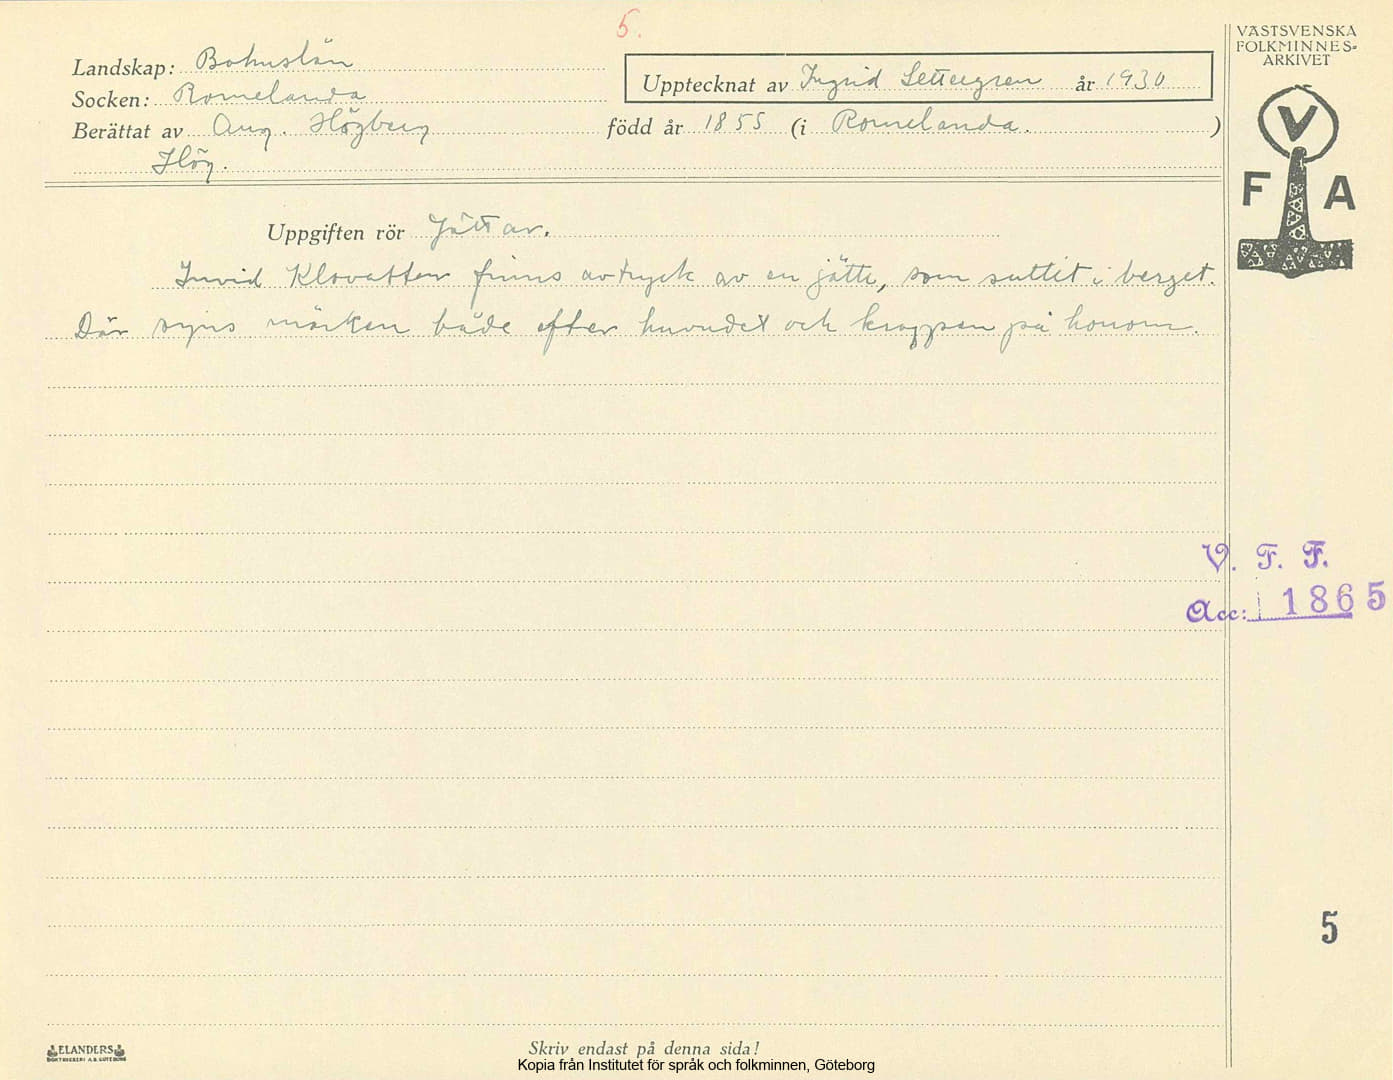 5.
VÄSTSVENSKA
FOLKMINNES-
ARKIVET
Landskap: Bohuslän
Upptecknat av Ingrid Settergren år 1930
Socken: Romelanda
Berättat av Aug. Högberg född år 1855 (i Romelanda. )
Hög.
V
F A
Uppgiften rör Jättar.
Invid Klovatten finns avtryck av en jätte, som suttit i berget.
Där syns märken både efter huvudet och kroppen på honom.
V. F. F.
Acc: 1865
5
ELANDERS
BOKTRYCKERI A.B. GÖTEBORG
Skriv endast på denna sida!
Kopia från Institutet för språk och folkminnen, Göteborg